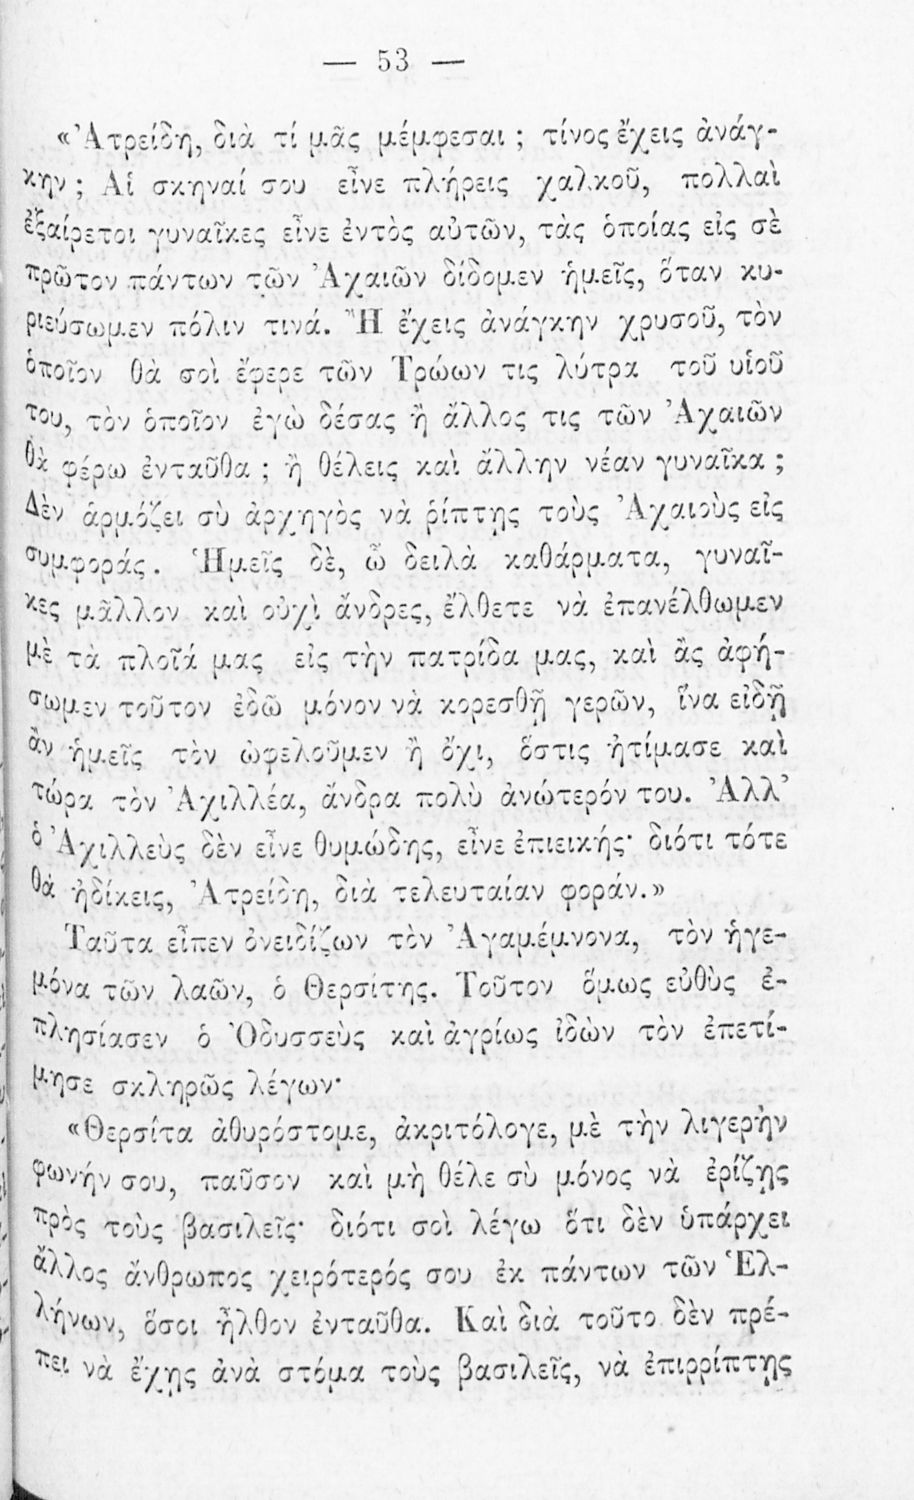 — 53 —
«Ἀτρείδη, διὰ τί μᾶς μέμφεσαι ; τίνος ἔχεις ἀνάγ-
κην ; Αἱ σκηναί σου εἶνε πλήρεις χαλκοῦ, πολλαὶ
ἐξαίρετοι γυναῖκες εἶνε ἐντὸς αὐτῶν, τὰς ὁποίας εἰς σὲ
πρῶτον πάντων τῶν Ἀχαιῶν δίδομεν ἡμεῖς, ὅταν κυ-
ριεύσωμεν πόλιν τινά. Ἢ ἔχεις ἀνάγκην χρυσοῦ, τὸν
ὁποῖον θὰ σοὶ ἔφερε τῶν Τρώων τις λύτρα τοῦ υἱοῦ
του, τὸν ὁποῖον ἐγὼ δέσας ἢ ἄλλος τις τῶν Ἀχαιῶν
θὰ φέρω ἐνταῦθα ; ἢ θέλεις καὶ ἄλλην νέαν γυναῖκα ;
Δὲν ἁρμόζει σὺ ἀρχηγὸς νὰ ῥίπτῃς τοὺς Ἀχαιοὺς εἰς
συμφοράς. Ἡμεῖς δὲ, ὦ δειλὰ καθάρματα, γυναῖ-
κες μᾶλλον καὶ οὐχὶ ἄνδρες, ἔλθετε νὰ ἐπανέλθωμεν
μὲ τὰ πλοῖά μας εἰς τὴν πατρίδα μας, καὶ ἂς ἀφή-
σωμεν τοῦτον ἐδῶ μόνον νὰ κορεσθῇ γερῶν, ἵνα εἰδῇ
ἂν ἡμεῖς τὸν ὠφελοῦμεν ἢ ὄχι, ὅστις ἠτίμασε καὶ
τώρα τὸν Ἀχιλλέα, ἄνδρα πολὺ ἀνώτερόν του. Ἀλλ’
ὁ Ἀχιλλεὺς δὲν εἶνε θυμώδης, εἶνε ἐπιεικής· διότι τότε
θὰ ἠδίκεις, Ἀτρείδη, διὰ τελευταίαν φοράν.»
Ταῦτα εἶπεν ὀνειδίζων τὸν Ἀγαμέμνονα, τὸν ἡγε-
μόνα τῶν λαῶν, ὁ Θερσίτης. Τοῦτον ὅμως εὐθὺς ἐ-
πλησίασεν ὁ Ὀδυσσεὺς καὶ ἀγρίως ἰδὼν τὸν ἐπετί-
μησε σκληρῶς λέγων·
«Θερσίτα ἀθυρόστομε, ἀκριτόλογε, μὲ τὴν λιγερὴν
φωνήν σου, παῦσον καὶ μὴ θέλε σὺ μόνος νὰ ἐρίζῃς
πρὸς τοὺς βασιλεῖς· διότι σοὶ λέγω ὅτι δὲν ὑπάρχει
ἄλλος ἄνθρωπος χειρότερός σου ἐκ πάντων τῶν Ἑλ-
λήνων, ὅσοι ἦλθον ἐνταῦθα. Καὶ διὰ τοῦτο δὲν πρέ-
πει νὰ ἔχῃς ἀνὰ στόμα τοὺς βασιλεῖς, νὰ ἐπιρρίπτῃς